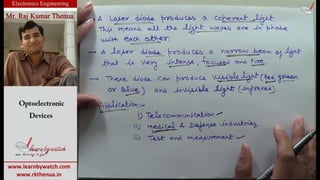 Electronics Engineering
Mr. Raj Kumar Thenua
Optoelectronic
Devices
Learnbywatch
www.learnbywatch.com
www.rkthenua.in
A Laser diode produces a coherent light.
This means all the light waves are in phase
with each other.
→ A laser diode produces a narrow beam of light
that is very intense, focused and pure.
→ These diode can produce visible light (red, green
or blue) and invisible light (infrared)
Application:-
i) Telecommunication
ii) Medical & Defense industries
iii) Test and measurement